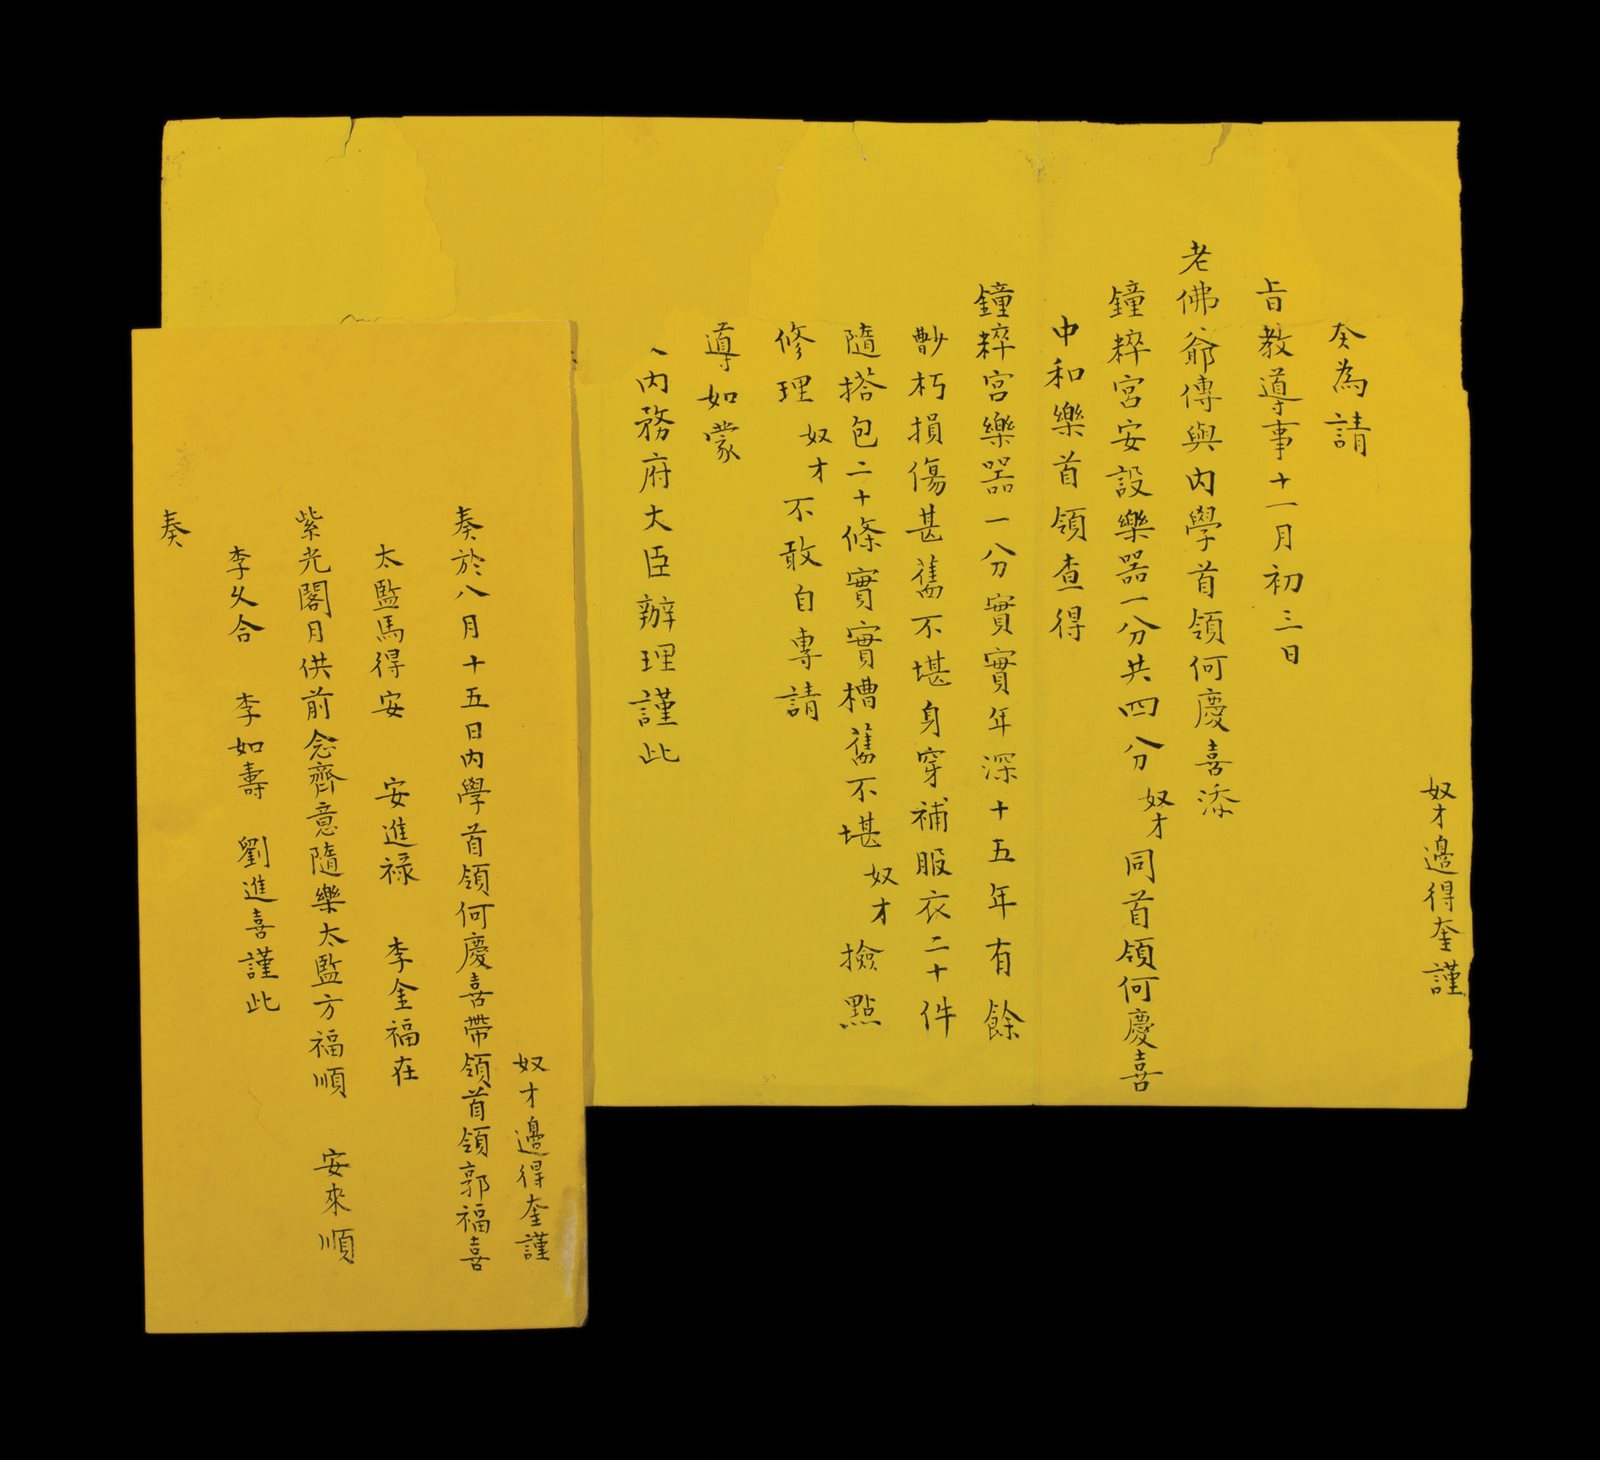 奴才邊得奎謹
奏為請
旨教導事十一月初三日
老佛爺傳與內學首領何慶喜添
鐘粹宮安設樂器一分共四分奴才同首領何慶喜
中和樂首領查得
鐘粹宮樂器一分實實年深十五年有餘
朽損傷甚舊不堪身穿補服衣二十件
隨搭包二十條實實槽舊不堪奴才撿點
修理奴才不敢自專請
導如蒙
內務府大臣辦理謹此
奴才邊得奎謹
奏於八月十五日內學首領何慶喜帶領首領郭福喜
太監馬得安 安進祿 李金福在
紫光閣月供前念齊意隨樂太監方福順 安來順
李乆合 李如壽 劉進喜謹此
奏